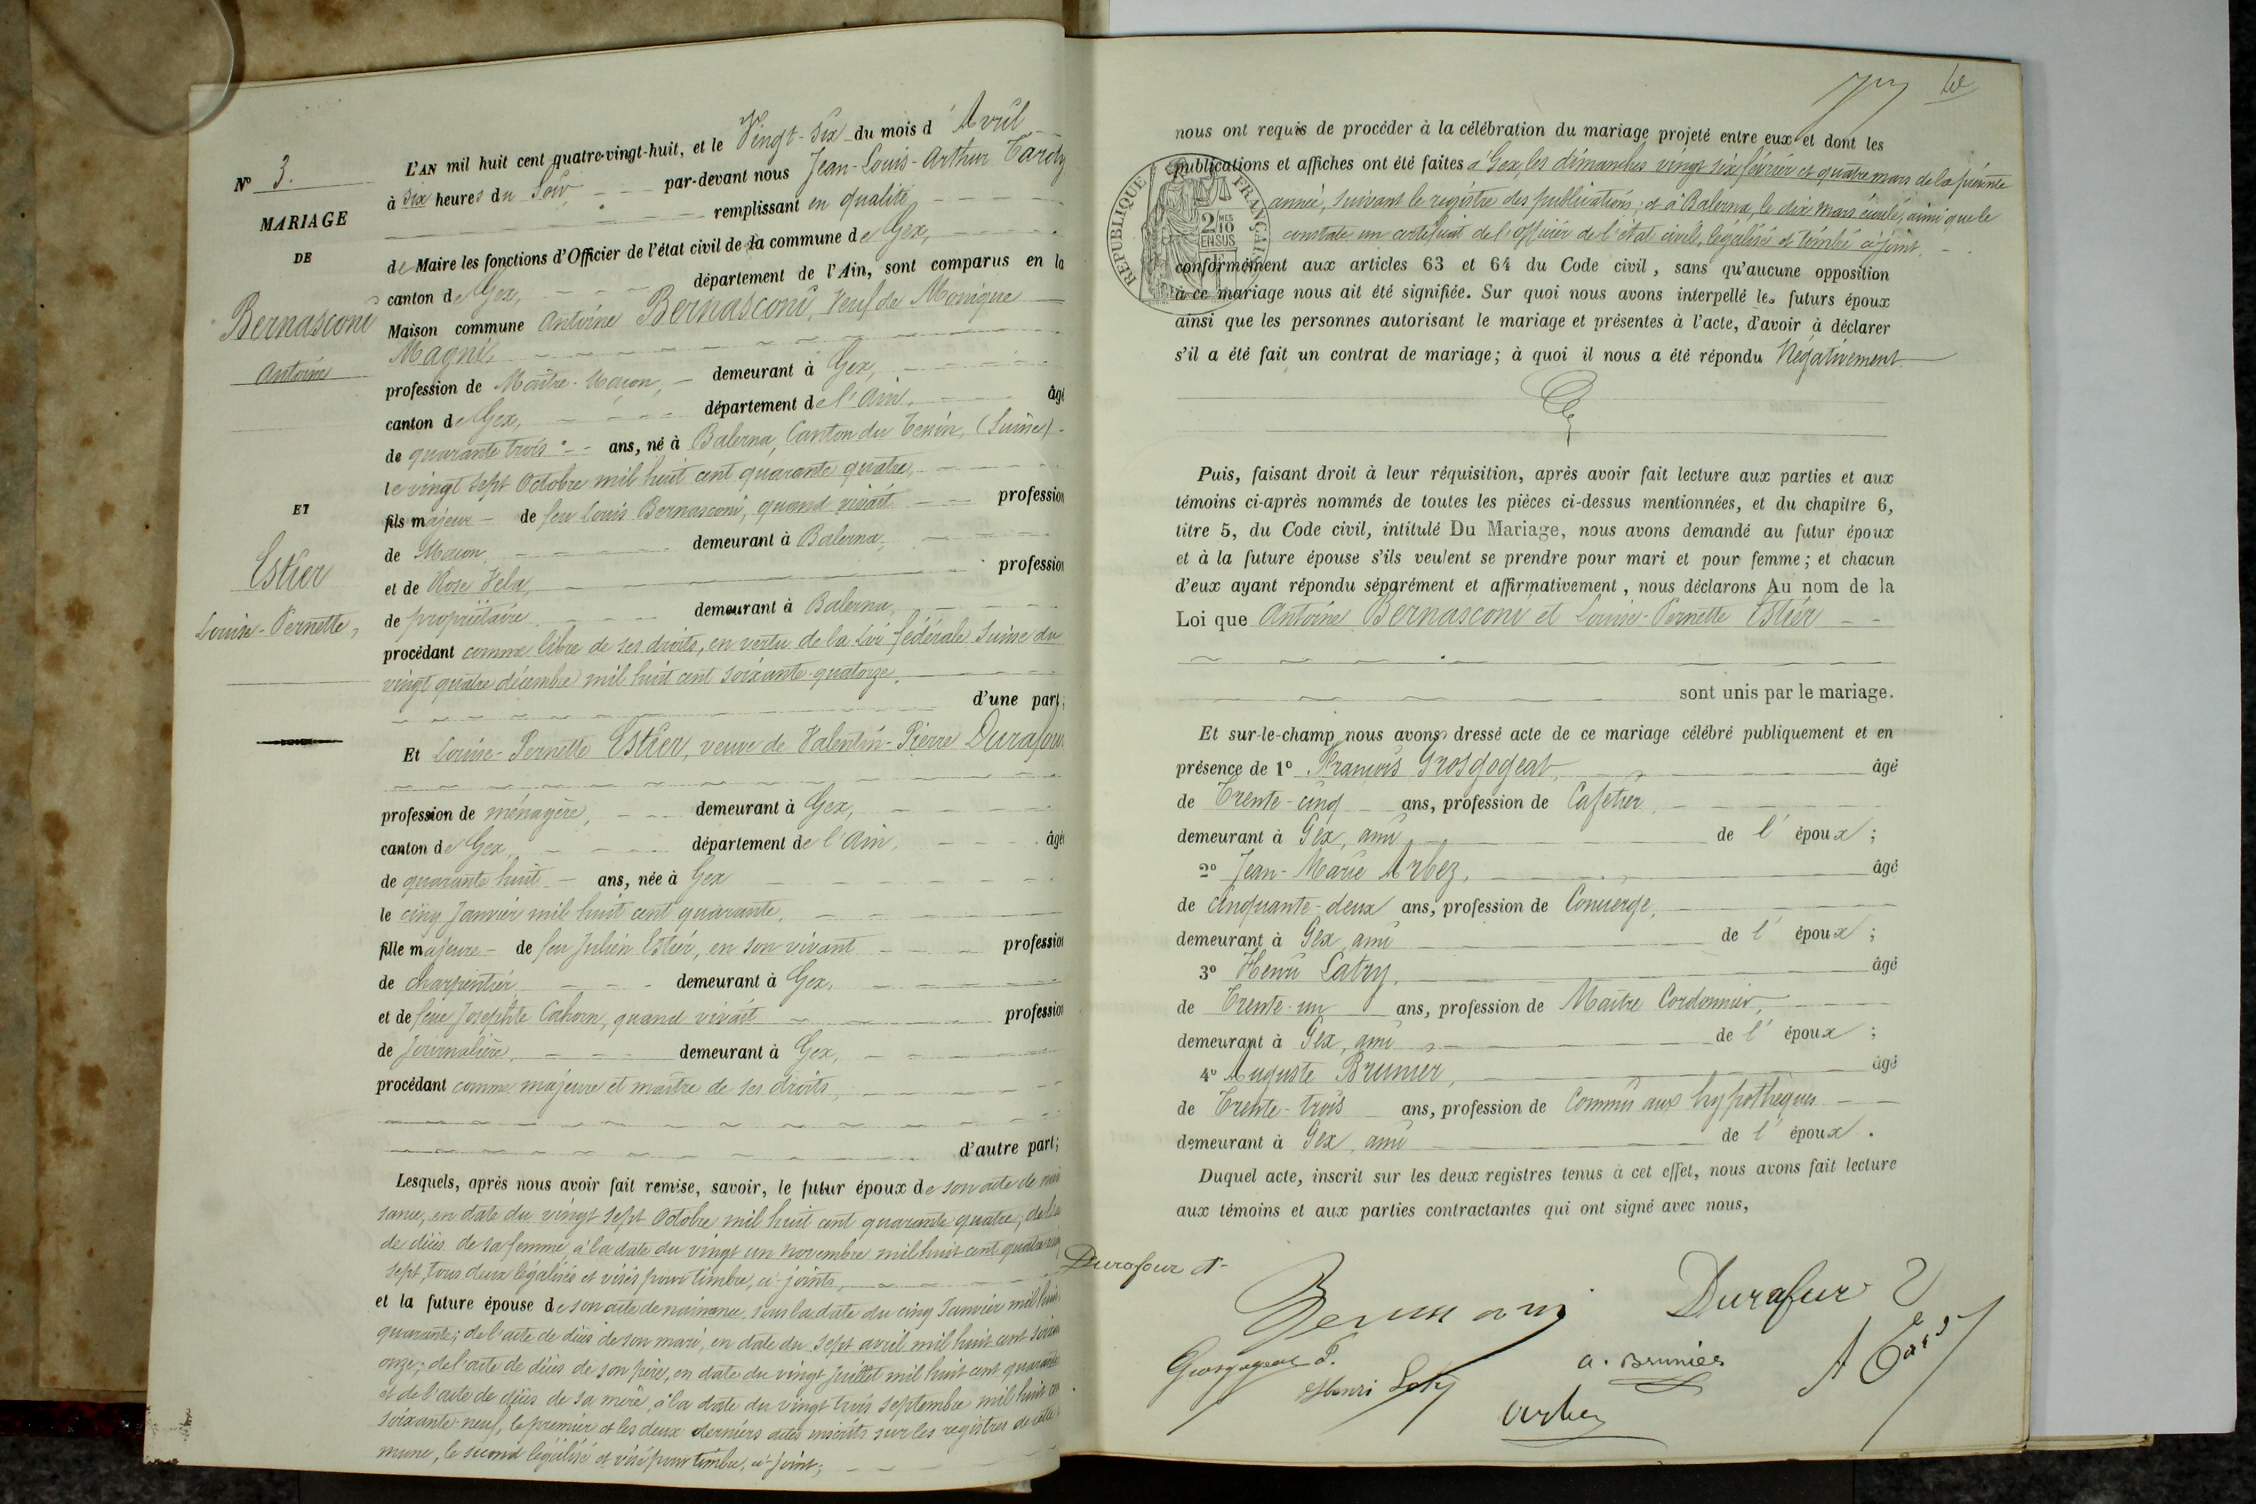 N° 3.
MARIAGE
DE
Bernasconi
Antoine
ET
Estier
Louise-Pernette,
L'AN mil huit cent quatre-vingt-huit, et le Vingt-Six du mois d'Avril
à six heures du Soir, par-devant nous Jean-Louis-Arthur Tardy
remplissant en qualité
de Maire les fonctions d'Officier de l'état civil de la commune de Gex,
canton de Gex, département de l'Ain, sont comparus en la
Maison commune Antoine Bernasconi, veuf de Monique
Magni,
profession de Maître-Maçon, demeurant à Gex,
canton de Gex, département de l'Ain, âgé
de quarante trois ans, né à Balerna, Canton du Tessin, (Suisse)
le vingt sept Octobre mil huit cent quarante quatre,
fils majeur de feu Louis Bernasconi, quand vivait profession
de Maçon, demeurant à Balerna,
et de Rose Vela, profession
de propriétaire demeurant à Balerna,
procédant comme libre de ses droits, en vertu de la Loi fédérale Suisse du
vingt quatre décembre mil huit cent soixante-quatorze.
d'une part;
Et Louise-Pernette Estier, veuve de Valentin-Pierre Durafour
profession de ménagère, demeurant à Gex,
canton de Gex, département de l'Ain, âgée
de quarante huit ans, née à Gex
le cinq Janvier mil huit cent quarante,
fille majeure de feu Julien Estier, en son vivant profession
de charpentier demeurant à Gex,
et de feue Josephte Cahorn, quand vivait profession
de Journalière, demeurant à Gex,
procédant comme majeure et maître de ses droits,
d'autre part;
Lesquels, après nous avoir fait remise, savoir, le futur époux de son acte de nais
sance, en date du vingt sept Octobre mil huit cent quarante quatre; de l'acte
de décès de sa femme, à la date du vingt un novembre mil huit cent quatre ving
sept, tous deux légalisés et visés pour timbre, ci-joints,
et la future épouse de son acte de naissance, sous la date du cinq Janvier mil huit
quarante; de l'acte de décès de son mari, en date du sept avril mil huit cent soixan
onze; de l'acte de décès de son père, en date du vingt Juillet mil huit cent quarante
et de l'acte de décès de sa mère, à la date du vingt trois septembre mil huit cen
soixante neuf, le premier et les deux derniers actes inscrits sur les registres de cette
mune, le second légalisé et visé pour timbre, ci-joint;
nous ont requis de procéder à la célébration du mariage projeté entre eux et dont les
publications et affiches ont été faites à Gex, les dimanches vingt six février et quatre mars de la présente
année, suivant le registre des publications; et à Balerna, le dix mars écoulé, ainsi que le
constate un certificat de l'officier de l'état civil, légalisé et timbré ci-joint.
RÉPUBLIQUE FRANÇAISE
2 MES
10
EN SUS
conformément aux articles 63 et 64 du Code civil, sans qu'aucune opposition
à ce mariage nous ait été signifiée. Sur quoi nous avons interpellé les futurs époux
ainsi que les personnes autorisant le mariage et présentes à l'acte, d'avoir à déclarer
s'il a été fait un contrat de mariage; à quoi il nous a été répondu Négativement
Puis, faisant droit à leur réquisition, après avoir fait lecture aux parties et aux
témoins ci-après nommés de toutes les pièces ci-dessus mentionnées, et du chapitre 6,
titre 5, du Code civil, intitulé Du Mariage, nous avons demandé au futur époux
et à la future épouse s'ils veulent se prendre pour mari et pour femme; et chacun
d'eux ayant répondu séparément et affirmativement, nous déclarons Au nom de la
Loi que Antoine Bernasconi et Louise-Pernette Estier
sont unis par le mariage.
Et sur-le-champ nous avons dressé acte de ce mariage célébré publiquement et en
présence de 1° François Grosgogeat, âgé
de Trente-cinq ans, profession de Cafetier
demeurant à Gex, ami de l'époux;
2° Jean-Marie Arbez, âgé
de Cinquante-deux ans, profession de Concierge,
demeurant à Gex, ami de l'époux;
3° Henri Latry, âgé
de Trente-un ans, profession de Maître Cordonnier,
demeurant à Gex, ami de l'époux;
4° Auguste Brunier, âgé
de Trente-trois ans, profession de Commis aux hypothèques
demeurant à Gex, ami de l'époux.
Duquel acte, inscrit sur les deux registres tenus à cet effet, nous avons fait lecture
aux témoins et aux parties contractantes qui ont signé avec nous,
Durafour
Durafur
Grosgogeat F.
Henri Latry
a. Brunier
Arbez
A Tardy